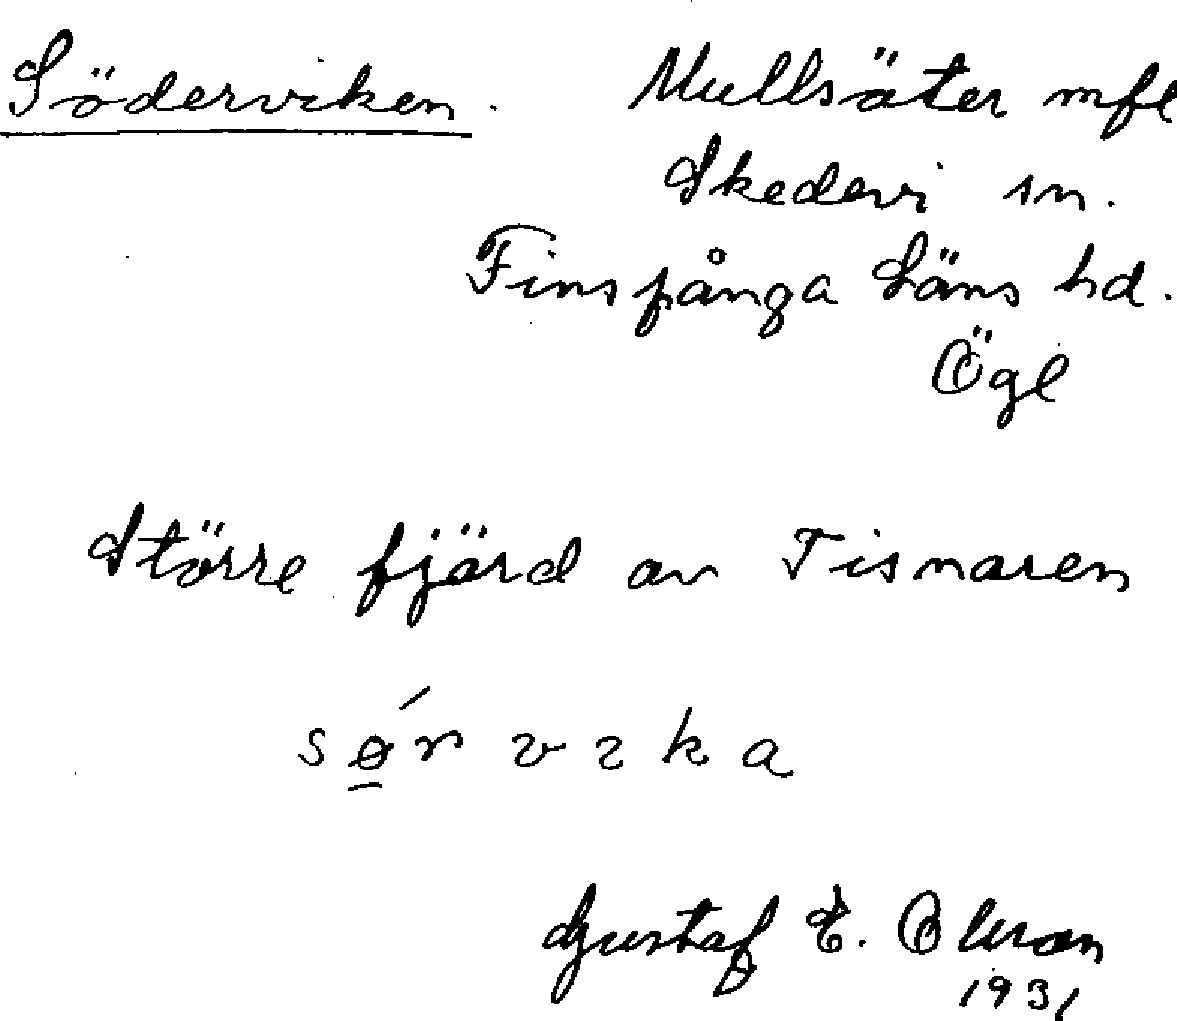 Söderviken. Mullsäter mfl
Skedevi sn.
Finspånga läns hd.
Ögl
Större fjärd av Tisnaren
sǿ̲r vika
Gustaf E. Olson
1931